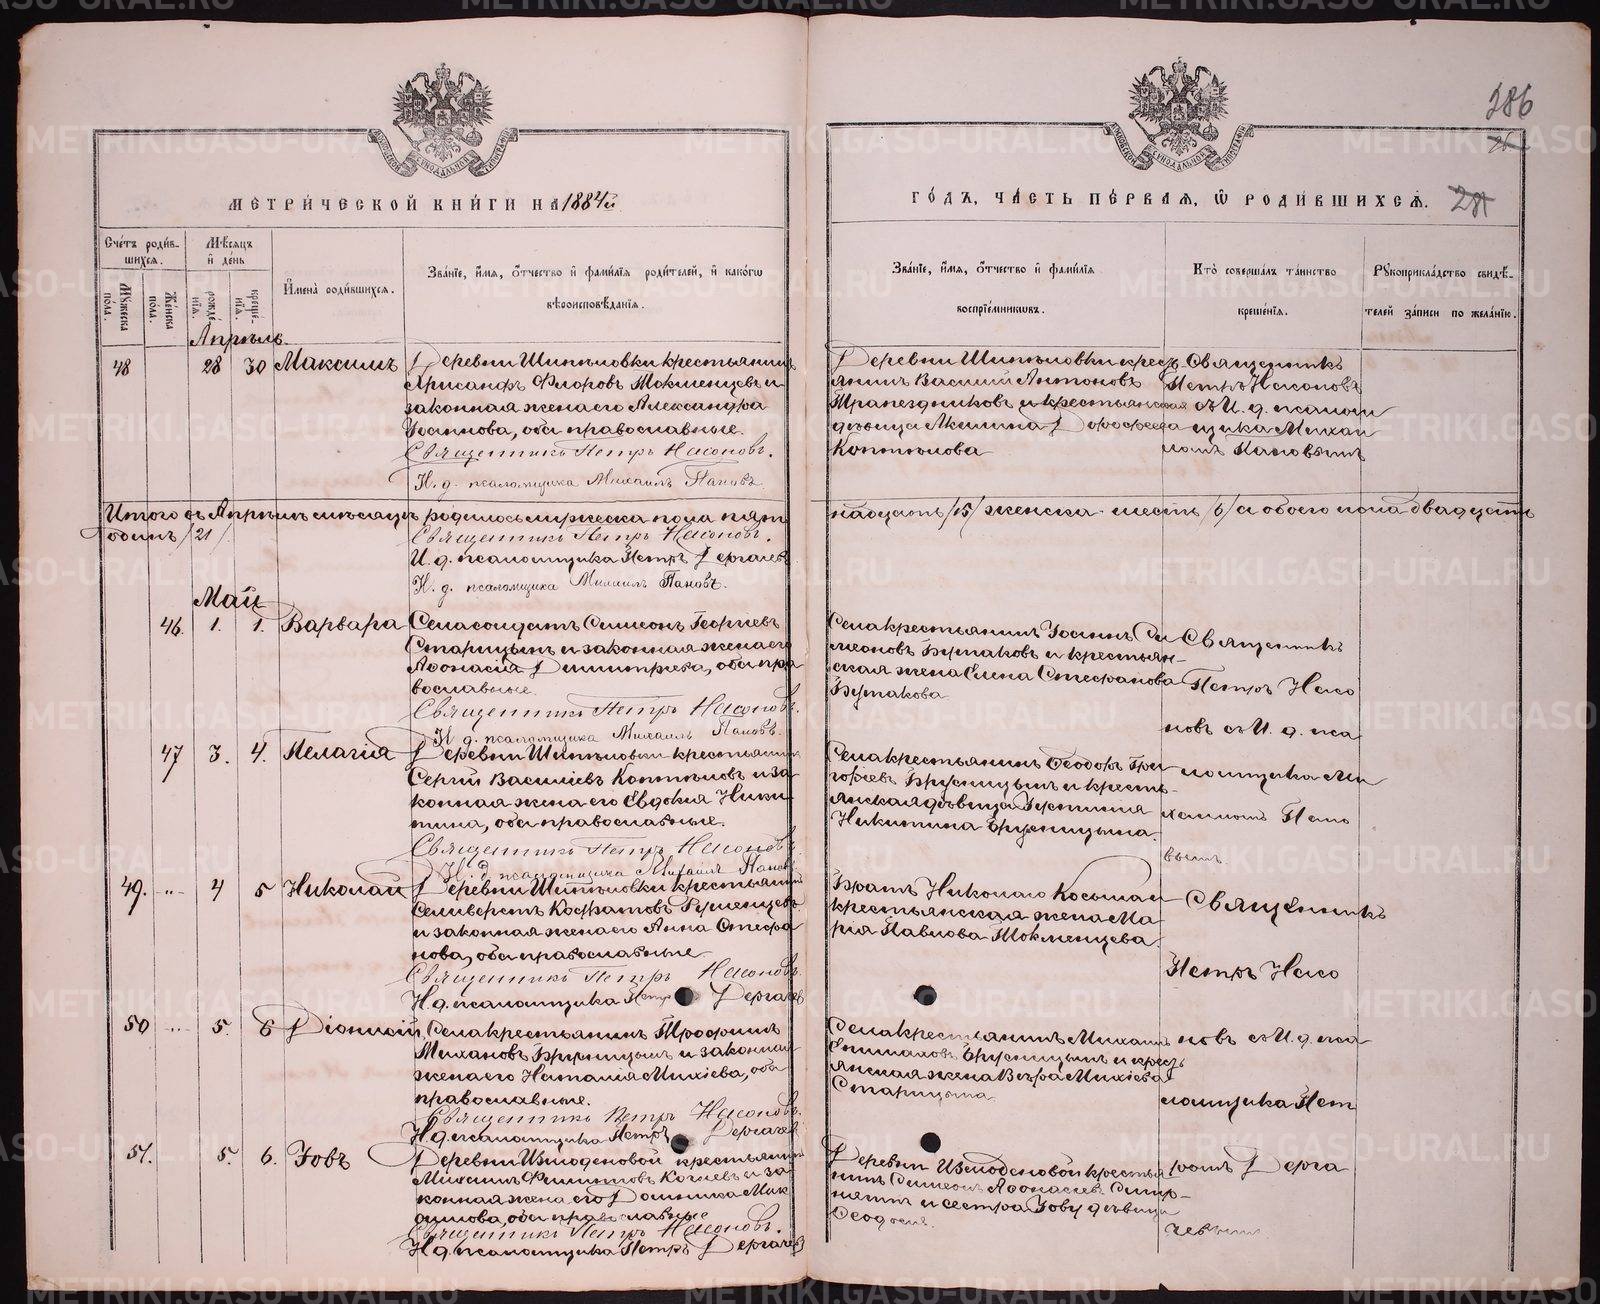 286
МЕТРИ́ЧЕСКОЙ КНИ́ГИ НА 1884й
ГО́ДЪ, ЧА́СТЬ ПЕ́РВАЯ, Ѡ РОДИ́ВШИХСЯ.
Сче́тъ роди́вшихся.
Му́жеска пола.
Же́нска пола.
Мѣ́сяцъ и де́нь
рожде́нія.
креще́нія.
И́мена̀ роди́вшихся.
Зва́ніе, и́мя, о́тчество и фами́лія роди́телей, и како́гѡ
вѣроисповѣ́данія.
Зва́ніе, и́мя, о́тчество и фами́лія
воспріе́мникѡвъ.
Кто̀ соверша́лъ та́инство
креще́нія.
Рꙋкоприкла́дство свидѣ́-
телей за́писи по жела́нію.
Апрѣль.
48 28 30 Максимъ
Деревни Шипѣловки крестьянинъ
Хрисанфъ Флоровъ Токменцевъ и
законная жена его Александра
Іосипова, оба православные.
Священникъ Петръ Насоновъ.
И. д. псаломщика Михаилъ Пановъ.
Деревни Шипѣловки кресть
янинъ Василій Антоновъ
Трапезниковъ и крестьянская
дѣвица Акилина Дорофеева
Коптѣлова
Священникъ
Петръ Насоновъ
съ И. д. псалом
щика Михаи
ломъ Пановымъ
Итого въ Апрѣлѣ мѣсяцѣ родилось мужеска пола пят
надцать /15/ женска шесть /6/ а обоего пола двадцать
одинъ /21/
Священникъ Петръ Насоновъ.
И. д. псаломщика Петръ Дергачевъ
И. д. псаломщика Михаилъ Пановъ.
Май
46. 1. 1. Варвара
Села солдатъ Симеонъ Георгіевъ
Старицынъ и законная жена его
Афонасія Димитріева, оба пра
вославные.
Священникъ Петръ Насоновъ.
И. д. псаломщика Михаилъ Пановъ.
Села крестьянинъ Іоаннъ Си
меоновъ Бурмаковъ и крестьян-
ская жена Елена Стефанова
Бурмакова
Священникъ
Петръ Насо
новъ съ И. д. пса
47 3. 4. Пелагія
Деревни Шипѣловки крестьянинъ
Сергій Василіевъ Коптѣловъ и за-
конная жена его Евдокія Ники-
тина, оба православные.
Священникъ Петръ Насоновъ
И. д. псаломщика Михаилъ Пановъ
Села крестьянинъ Ѳеодоръ Гри
горіевъ Брусницынъ и кресть-
янская дѣвица Іустинія
Никитина Брусницына.
ломщика Ми
хаиломъ Пано
вымъ.
49. -„- 4 5 Николай
Деревни Шипѣловки крестьянинъ
Селиверстъ
и законная жена его Анна Стефа
нова, оба православные
Священникъ Петръ Насоновъ.
И д. псаломщика Петръ Дергачев
Братъ Николаю Косьма и
крестьянская жена Ма-
рія Павлова Токменцева.
Священникъ
Петръ Насо
50 -„- 5. 6 Діонисій
Села крестьянинъ Трофимъ
Брусницынъ и законная
жена его Наталія Михіева, оба
православные.
Священникъ Петръ Насоновъ.
И д. псаломщика Петръ Дергачев
Села крестьянинъ Михаилъ
Брусницынъ и кресть
янская жена Вѣра Михіева
Старицына.
новъ съ И. д. пса
ломщика Пет
51. 5. 6. Іовъ
Деревни Измоденовой крестьянинъ
Филипповъ и за
конная жена его Домника Мак
симова, оба православные
Священникъ Петръ Насоновъ.
И д. псаломщика Петръ Дергачев
Деревни Измоденовой крестья
нинъ Симеонъ Афонасіевъ
и сестра Іову дѣвица
Ѳеодосія.
ромъ Дерга
чевымъ